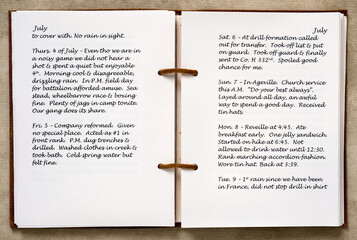 July
to cover with. No rain in sight.
Thurs. 4 of July - Even tho we are in
a noisy game we did not hear a
shot & spent a quiet but enjoyable
4th. Morning cool & disagreeable,
drizzling rain. In P.M. field day
for battalion afforded amus. Sea
stead, wheelbarrow race & boxing
fine. Plenty of jags in camp tonite.
Our gang does its share.
Fri. 5 - Company reformed. Given
no special place. Acted as #1 in
front rank. P.M. dug trenches &
drilled. Washed clothes in creek &
took bath. Cold spring water but
felt fine.
July
Sat. 6 - At drill formation called
out for transfer. Took off list & put
on guard. Took off guard & finally
sent to Co. H 332nd. Spoiled good
chance for me.
Sun. 7 - In Ageville. Church service
this A.M. "Do your best always".
Layed around all-day, an awful
way to spend a good day. Received
tin hats.
Mon. 8 - Reveille at 4:45. Ate
breakfast early. One jelly sandwich.
Started on hike at 6:45. Not
allowed to drink water until 12:30.
Rank marching accordion fashion.
Wore tin hat. Back at 3:39.
Tue. 9 - 1st rain since we have been
in France, did not stop drill in shirt